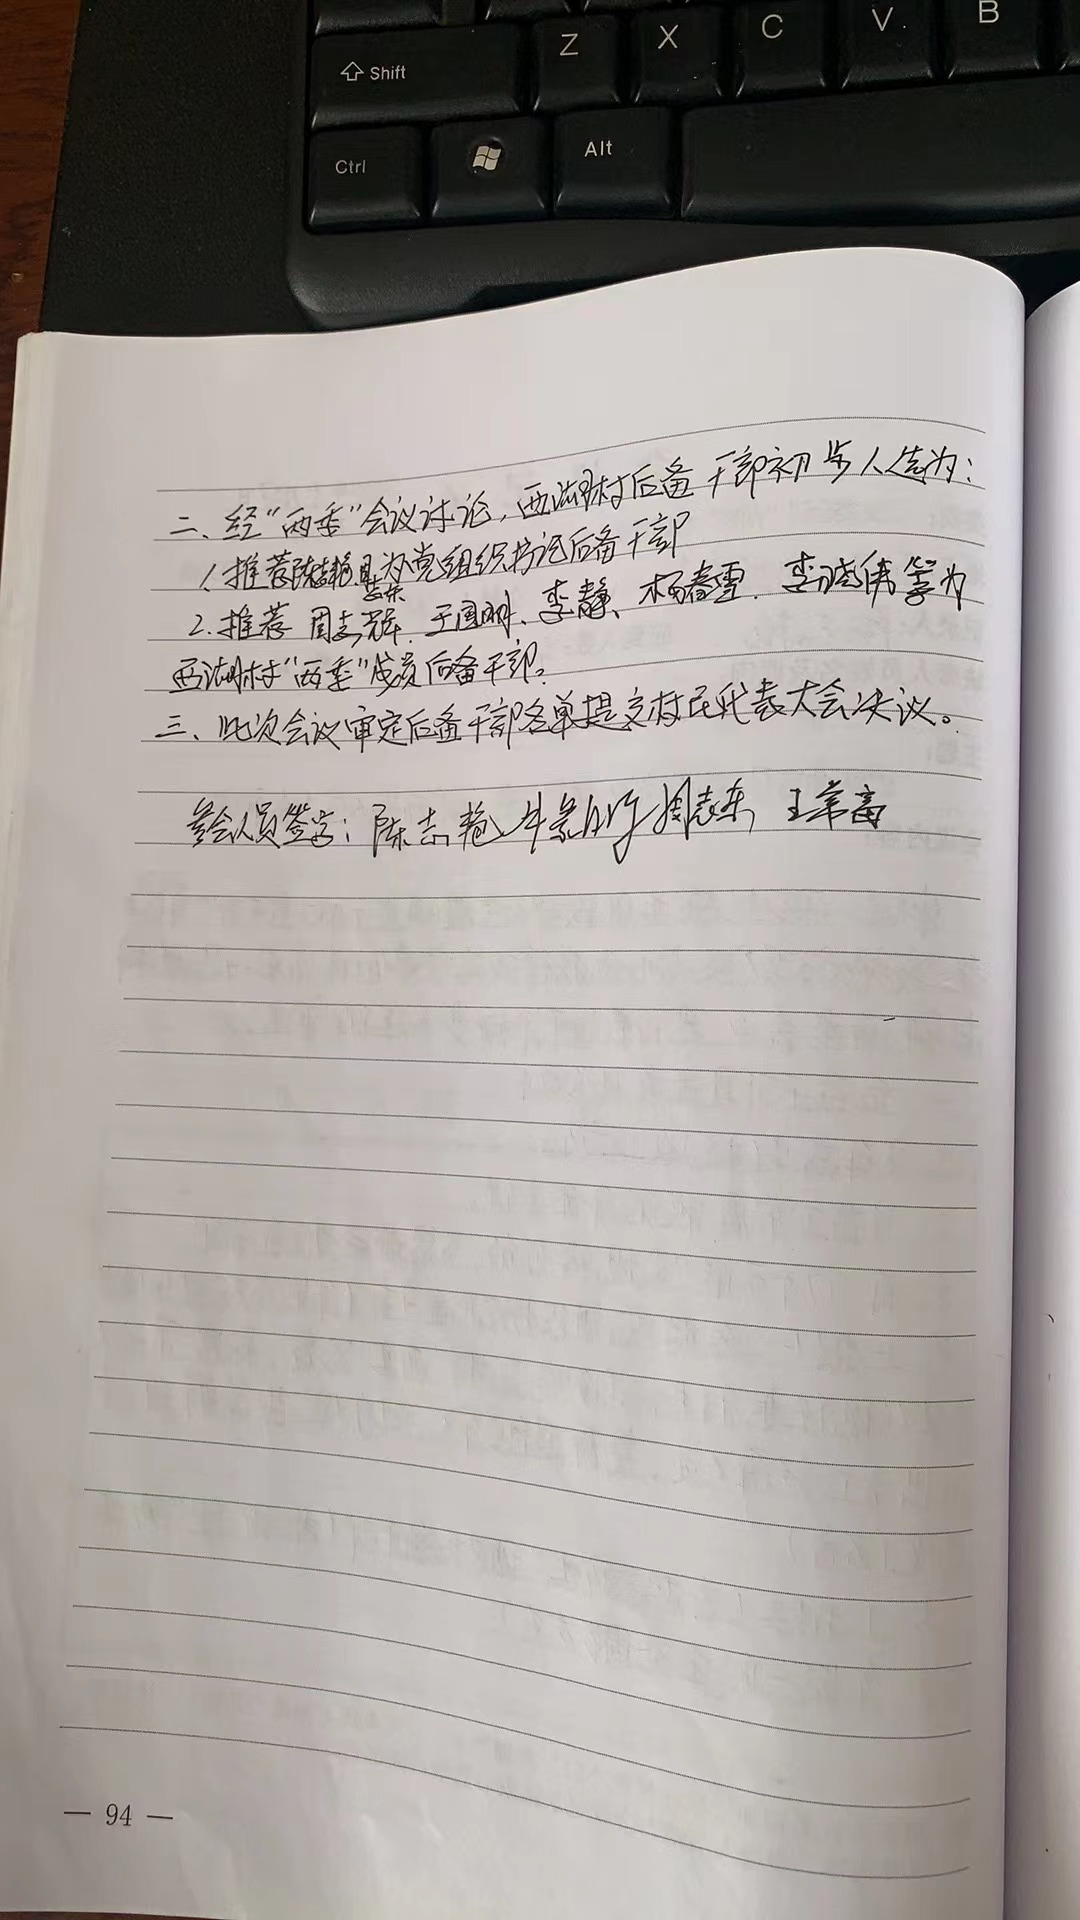 Z X C V B
Shift
Ctrl Alt
二、经“两委”会议讨论，西湖村后备干部初步人选为：
1、推荐陈志艳、周志东为党组织书记后备干部
2、推荐 周志辉、王国明、李静、杨春雪、李晓伟等为
西湖村“两委”成员后备干部。
三、此次会议审定后备干部名单提交村民代表大会决议。
参会人员签字：陈志艳 周志东 王常富
— 94 —